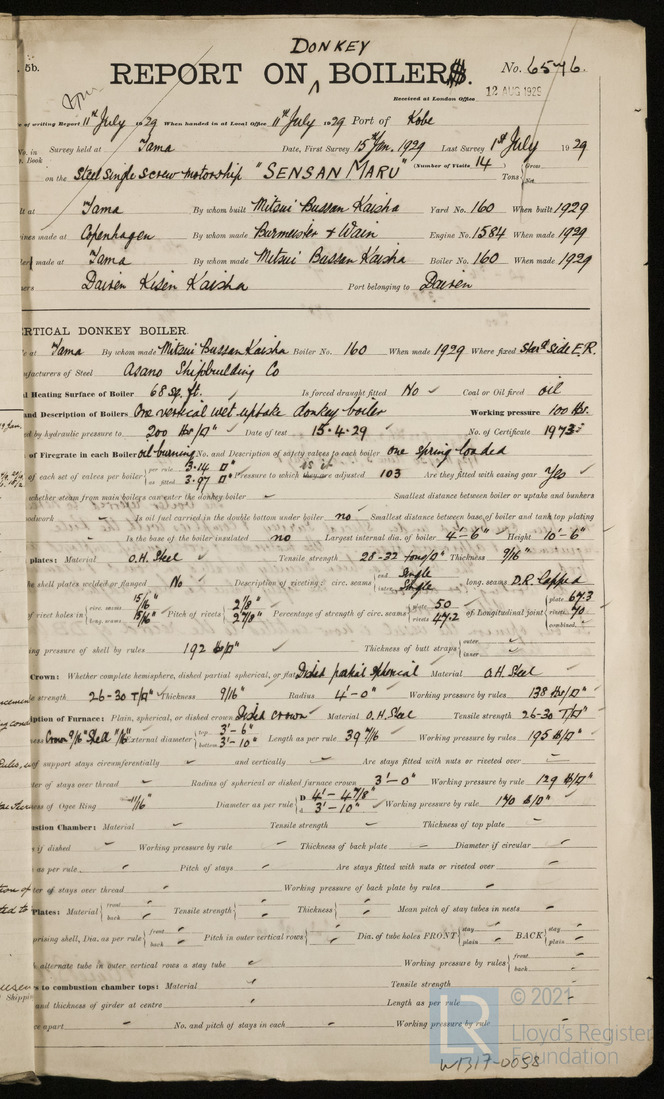 DONKEY
5b. REPORT ON BOILERS. No. 6576.
Received at London Office 12 AUG 1929
of writing Report 11th July 1929 When handed in at Local Office 11th July 1929 Port of Kobe
No. in Survey held at Tama Date, First Survey 15th Jan. 1929 Last Survey 1st July 1929
Book (Number of Visits 14)
on the Steel Single Screw motorship "SENSAN MARU" Tons Gross Net
lt at Tama By whom built Mitsui Bussan Kaisha Yard No. 160 When built 1929
ines made at Copenhagen By whom made Burmeister & Wain Engine No. 1584 When made 1929
made at Tama By whom made Mitsui Bussan Kaisha Boiler No. 160 When made 1929
ners Dairen Kisen Kaisha Port belonging to Dairen
ERTICAL DONKEY BOILER.
at Tama By whom made Mitsui Bussan Kaisha Boiler No. 160 When made 1929 Where fixed Starbd Side E.R.
ufacturers of Steel Asano Shipbuilding Co
al Heating Surface of Boiler 68 sq. ft. Is forced draught fitted No Coal or Oil fired oil
and Description of Boilers One vertical wet uptake donkey boiler Working pressure 100 lbs.
ed by hydraulic pressure to 200 lbs/□" Date of test 15.4.29 No. of Certificate 1973
of Firegrate in each Boiler oil burning No. and Description of safety valves to each boiler one spring loaded
of each set of valves per boiler per rule 3.14 □" as fitted 3.97 □" Pressure to which they are is it adjusted 103 Are they fitted with easing gear Yes
whether steam from main boilers can enter the donkey boiler Smallest distance between boiler or uptake and bunkers
oodwork Is oil fuel carried in the double bottom under boiler no Smallest distance between base of boiler and tank top plating
Is the base of the boiler insulated no Largest internal dia. of boiler 4'-6" Height 10'-6"
plates: Material O.H. Steel Tensile strength 28-32 tons/□" Thickness 9/16"
he shell plates welded or flanged No Description of riveting: circ. seams end Single inter. Single long. seams D.R. Lapped
of rivet holes in circ. seams 15/16" long. seams 15/16" Pitch of rivets 2 1/8" 2 7/8" Percentage of strength of circ. seams plate 50 rivets 47.2 of Longitudinal joint plate 67.3 rivets 70 combined
ing pressure of shell by rules 192 lbs/□" Thickness of butt straps outer inner
Crown: Whether complete hemisphere, dished partial spherical, or flat Dished partial spherical Material O.H. Steel
le strength 26-30 T/□" Thickness 9/16" Radius 4'-0" Working pressure by rules 138 lbs/□"
iption of Furnace: Plain, spherical, or dished crown Dished crown Material O.H. Steel Tensile strength 26-30 T/□"
ness Crown 9/16" Shell 11/16" External diameter top 3'-6" bottom 3'-10" Length as per rule 39 7/16 Working pressure by rules 195 lb/□"
of support stays circumferentially and vertically Are stays fitted with nuts or riveted over
ter of stays over thread Radius of spherical or dished furnace crown 3'-0" Working pressure by rule 129 lb/□"
ness of Ogee Ring 11/16" Diameter as per rule D 4'-4 7/8" d 3'-10" Working pressure by rule 170 lb/□"
ustion Chamber: Material Tensile strength Thickness of top plate
if dished Working pressure by rule Thickness of back plate Diameter if circular
as per rule Pitch of stays Are stays fitted with nuts or riveted over
ter of stays over thread Working pressure of back plate by rules
Plates: Material front back Tensile strength Thickness Mean pitch of stay tubes in nests
prising shell, Dia. as per rule front back Pitch in outer vertical rows Dia. of tube holes FRONT stay plain BACK stay plain
h alternate tube in outer vertical rows a stay tube Working pressure by rules front back
s to combustion chamber tops: Material Tensile strength
and thickness of girder at centre Length as per rule
ce apart No. and pitch of stays in each Working pressure by rule
© 2021
Lloyd's Register
Foundation
LR
W1317-0058